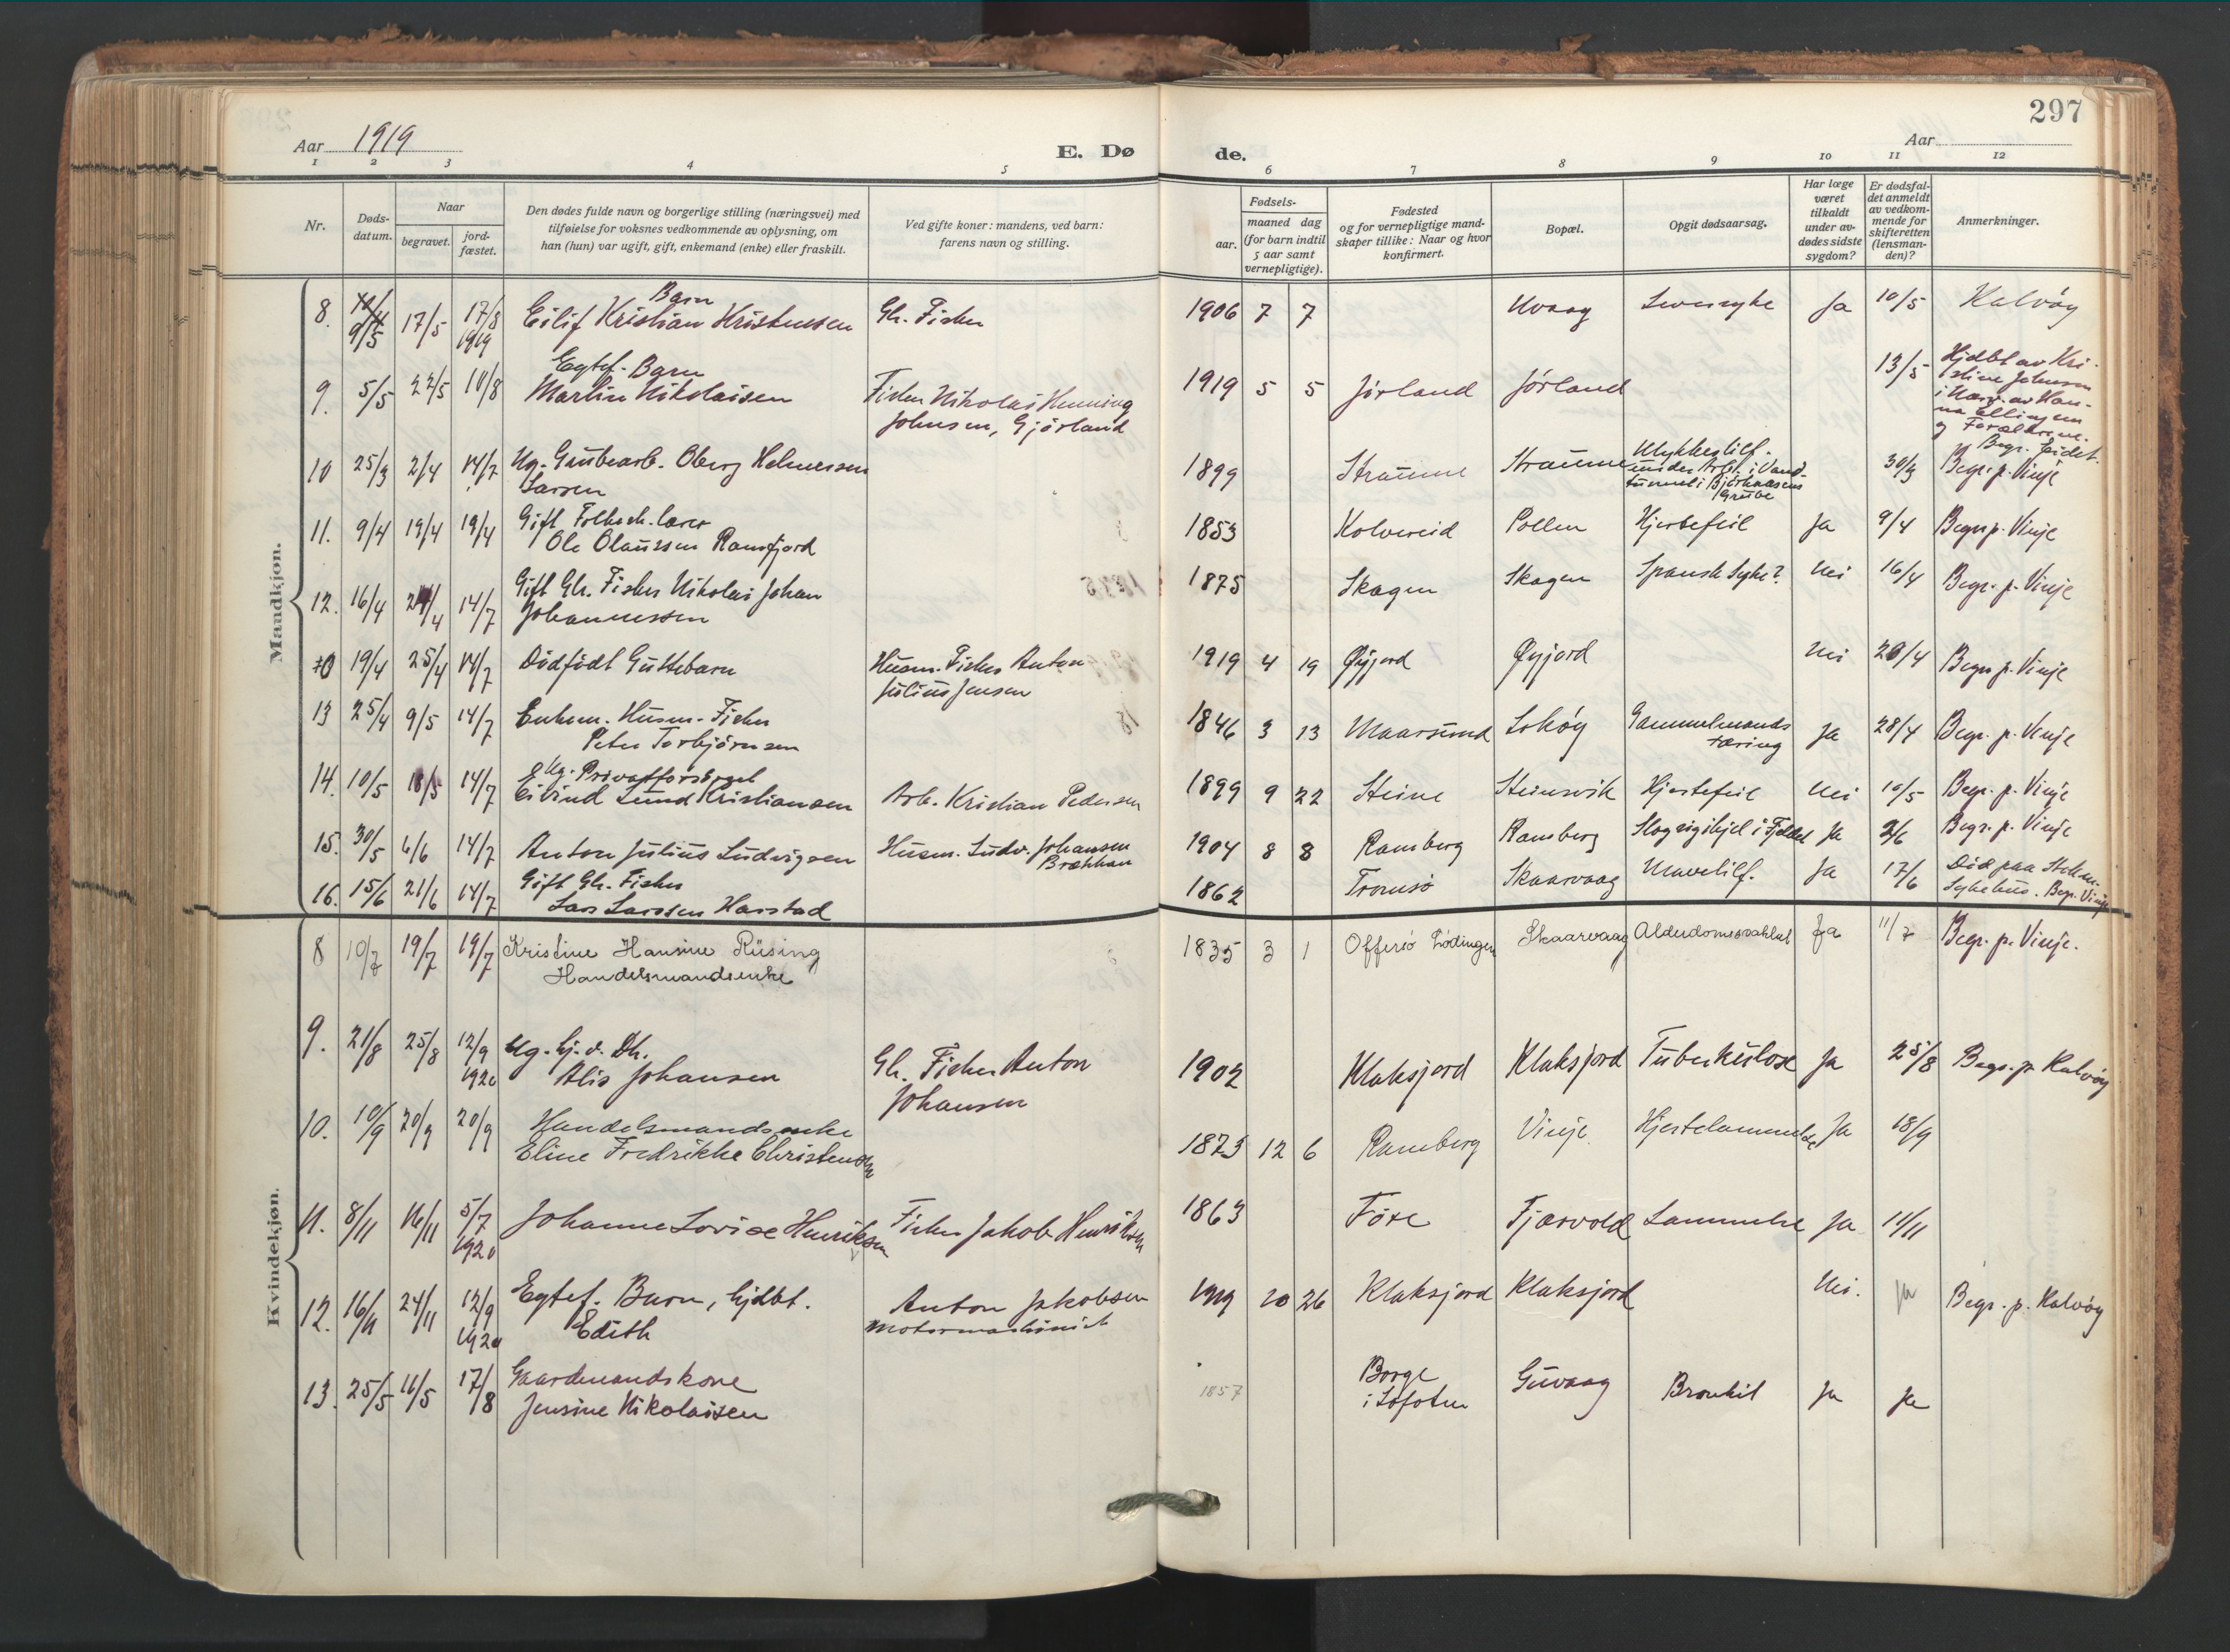 297
Aar 1919
E. Dø
de.
Aar
1 2 3 4 5 6 7 8 9 10 11 12
Nr.
Døds-
datum.
Naar
begravet.
jord-
fæstet.
Den dødes fulde navn og borgerlige stilling (næringsvei) med
tilføielse for voksnes vedkommende av oplysning, om
han (hun) var ugift, gift, enkemand (enke) eller fraskilt.
Ved gifte koner: mandens, ved barn:
farens navn og stilling.
Fødsels-
aar.
maaned dag
(for barn indtil
5 aar samt
vernepligtige).
Fødested
og for vernepligtige mand-
skaper tillike: Naar og hvor
konfirmert.
Bopæl.
Opgit dødsaarsag.
Har læge
været
tilkaldt
under av-
dødes sidste
sygdom?
Er dødsfal-
det anmeldt
av vedkom-
mende for
skifteretten
(lensman-
den)?
Anmerkninger.
Mandkjøn.
8. 9/5 17/5 17/8 1919 Barn
Eilif Kristian Kristensen Gh. Fisker 1906 7 7 Uvaag Ja 10/5 Kalvøy
9. 5/5 22/5 10/8 Egtef. Barn
Martin Nikolaisen Fisker Nikolai Henning
Johnsen, Gjørland 1919 5 5 Jørland Jørland 13/5 Hjdbt av Kri-
stine Johnsen
10 25/3 2/4 14/7 Ug. Grubearb. Oberg Helmersen
Larsen 1899 Straume Straume Ulykkestilf.
under Arb. i Vand-
tunnel i Bjørkaasens
Grube 30/3 Begr. p. Vinje
11. 9/4 19/4 19/4 Gift Folkesk. lærer
Ole Olaussen Ramfjord 1853 Kolvereid Pollen Hjertefeil Ja 9/4 Begr. p. Vinje
12. 16/4 24/4 14/7 Gift Gh. Fisker Nikolai Johan
Johannessen 1875 Skagen Skagen Spansk Syke? Nei 16/4 Begr. p. Vinje
19/4 25/4 14/7 Dødfødt Guttebarn Husm. Fisker Anton
Julius Jensen 1919 4 19 Øyjord Øyjord Nei 20/4 Begr. p. Vinje
13 25/4 9/5 14/7 Enkem. Husm. Fisker
Peter Torbjørnsen 1846 3 13 Maarsund Lokøy Gammelmands
tæring Ja 28/4 Begr. p. Vinje
14. 10/5 18/5 14/7 Ug. Privatforsørget
Eivind Lund Kristiansen Arb. Kristian Pedersen 1899 9 22 Steine Steinsvik Hjertefeil Nei 10/5 Begr. p. Vinje
15. 30/5 6/6 14/7 Anton Julius Ludvigsen Husm. Ludv. Johansen
1904 8 8 Ramberg Ramberg Slog sig ihjel i Fjeldet Ja 2/6 Begr. p. Vinje
16. 15/6 21/6 14/7 Gift Gh. Fisker
Lars Larssen Harstad 1862 Tromsø Skaarvaag Mavelilf. Ja 17/6 Død paa Stokm.
Sykehus. Begr. Vinje
Kvindekjøn.
8 10/7 19/7 19/7 Kristine Hansine Rüsing
Handelsmandsenke 1835 3 1 Offersø Lødingen Skaarvaag Alderdomssvakhet Ja 11/7 Begr. p. Vinje.
9. 21/8 25/8 12/9 1920 Ug. hj. v. Dt.
Alis Johansen Gh. Fisker Anton
Johansen 1902 Klaksjord Klaksjord Tuberkulose Ja 25/8 Begr. p. Kalvøy
10. 10/9 20/9 20/9 Handelsmandsenke
Eline Fredrikke Christensen 1873 12 6 Ramberg Vinje Hjertelammelse Ja 18/9
11. 8/11 16/11 5/7 1920 Johanne Lovise Henriksen Fisker Jakob Henriksen 1863 Føre Fjærvold Lammelse Ja 11/11
12. 16/11 24/11 12/9 1920 Egtef. Barn, hjdbt.
Edith Anton Jakobsen
Motormaskinist 1919 10 26 Klaksjord Klaksjord Nei. Ja Begr. p. Kalvøy
13. 25/5 16/5 17/8 Gaardmandskone
Jensine Nikolaisen 1857 Borge
i Lofoten Guvaag Bronkit Ja Ja